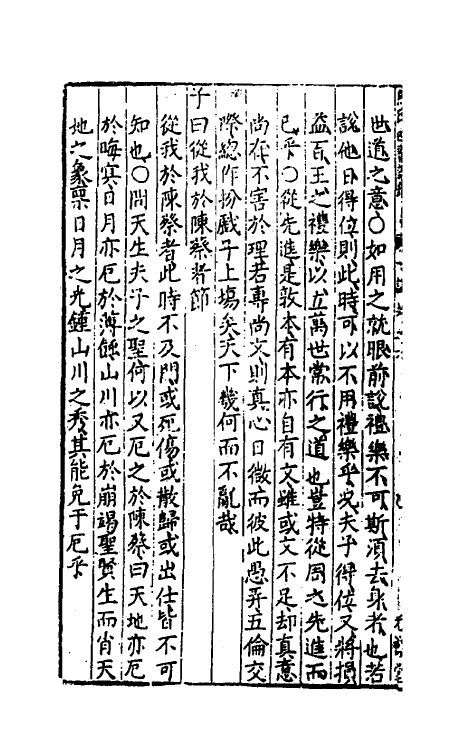 世道之意○如用之就眼前說禮樂不可斯須去身者也若
說他日得位則此時可以不用禮樂乎况夫子得位又將損
益百王之禮樂以立萬世常行之道也豈特從周之先進而
已乎○從先進是敦本有本亦自有文雖或文不足却真意
尚存不害於理若專尚文則真心日微而彼此愚弄五倫交
際總作扮戲子上塲矣天下幾何而不亂哉
子曰從我於陳蔡者節
從我於陳蔡者此時不及門或死傷或散歸或出仕皆不可
知也○問天生夫子之聖何以又厄之於陳蔡曰天地亦厄
於晦㝠日月亦厄於薄蝕山川亦厄於崩竭聖賢生而肖天
地之象禀日月之光鍾山川之秀其能免于厄乎